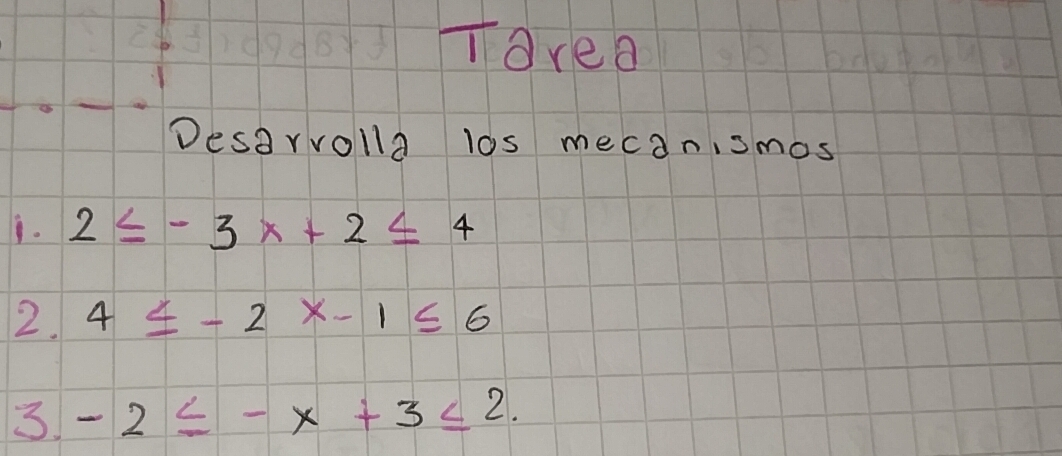 Tarea
Desarrolla los mecanismos
1. 2 ≤ - 3 x + 2 ≤ 4
2. 4 ≤ - 2 x - 1 ≤ 6
3. - 2 ≤ - x + 3 ≤ 2.